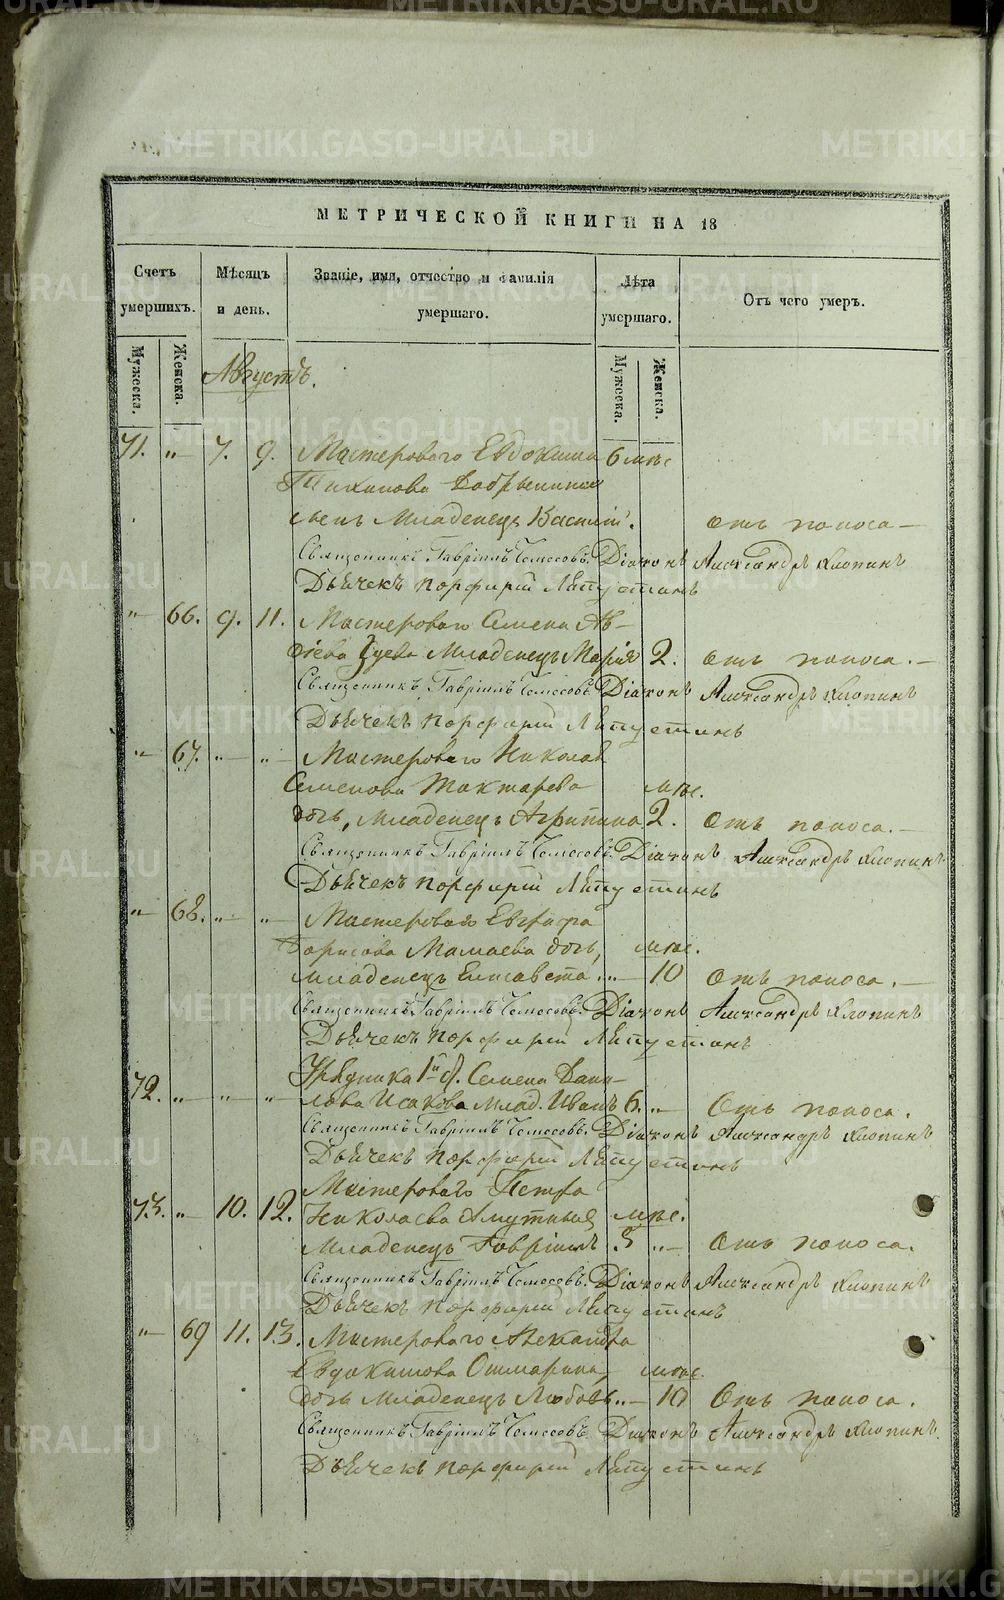 МЕТРИЧЕСКОЙ КНИГИ НА 18
Счетъ умершихъ. Мѣсяцъ и день. Званіе, имя, отчество и фамилія умершаго. Лѣта умершаго. Отъ чего умеръ.
Мужеска. Женска. Мужеска. Женска.
Августъ.
71. „ 7. 9. Мастероваго Евдокима 6 мѣс
Тихинова
сынъ Младенецъ Василій. отъ поноса
Священникъ Гавріилъ Діаконъ Александръ Клопинъ
Дьячекъ Порфирій Лапустинъ
„ 66. 9. 11. Мастероваго Семена Ав-
Младенецъ Марія 2. отъ поноса.
Священникъ Гавріилъ Діаконъ Александръ Клопинъ
Дьячекъ Порфирій Лапустинъ
„ 67. „ „ Мастероваго Николая
Семенова Тактарева мѣс.
дочь, Младенецъ Агрипина 2. отъ поноса.
Священникъ Гавріилъ Діаконъ Александръ Клопинъ
Дьячекъ Порфирій Лапустинъ
„ 68. „ „ Мастероваго Евграфа
Борисова Мамаева дочь, мѣс.
младенецъ Елисавета „ 10 отъ поноса.
Священникъ Гавріилъ Діаконъ Александръ Клопинъ
Дьячекъ Порфирій Лапустинъ
Урядника Семена Дани-
72. „ „ „ лова Исакова Млад. Иванъ 6. „ Отъ поноса.
Священникъ Гавріилъ Діаконъ Александръ Клопинъ
Дьячекъ Порфирій Лапустинъ
Мастероваго Петра
73. „ 10. 12. Николаева мѣс.
Младенецъ Гавріилъ 5 „ Отъ поноса.
Священникъ Гавріилъ Діаконъ Александръ Клопинъ
Дьячекъ Порфирій Лапустинъ
„ 69 11. 13. Мастероваго Александра
Евдокимова Ошмарина, мѣс.
дочь Младенецъ Любовь „ 10 Отъ поноса.
Священникъ Гавріилъ Діаконъ Александръ Клопинъ.
Дьячекъ Порфирій Лапустинъ
METRIKI.GASO-URAL.RU